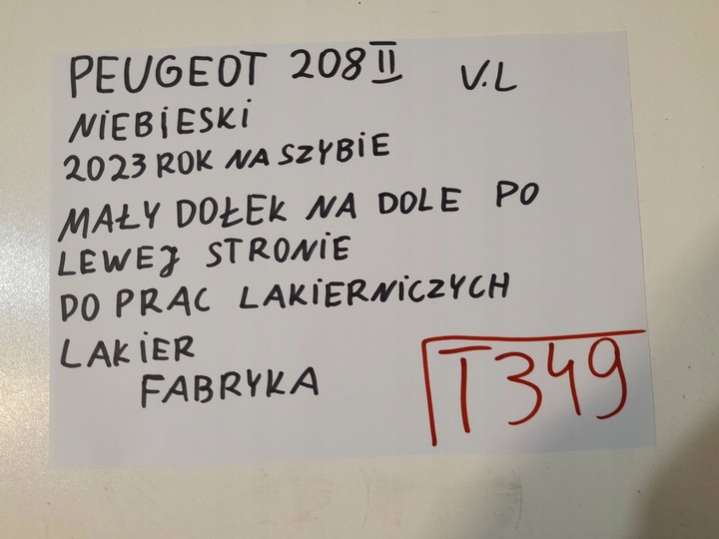 PEUGEOT 208 II V.L
NIEBIESKI
2023 ROK NA SZYBIE
MAŁY DOŁEK NA DOLE PO
LEWEJ STRONIE
DO PRAC LAKIERNICZYCH
LAKIER
FABRYKA
T349